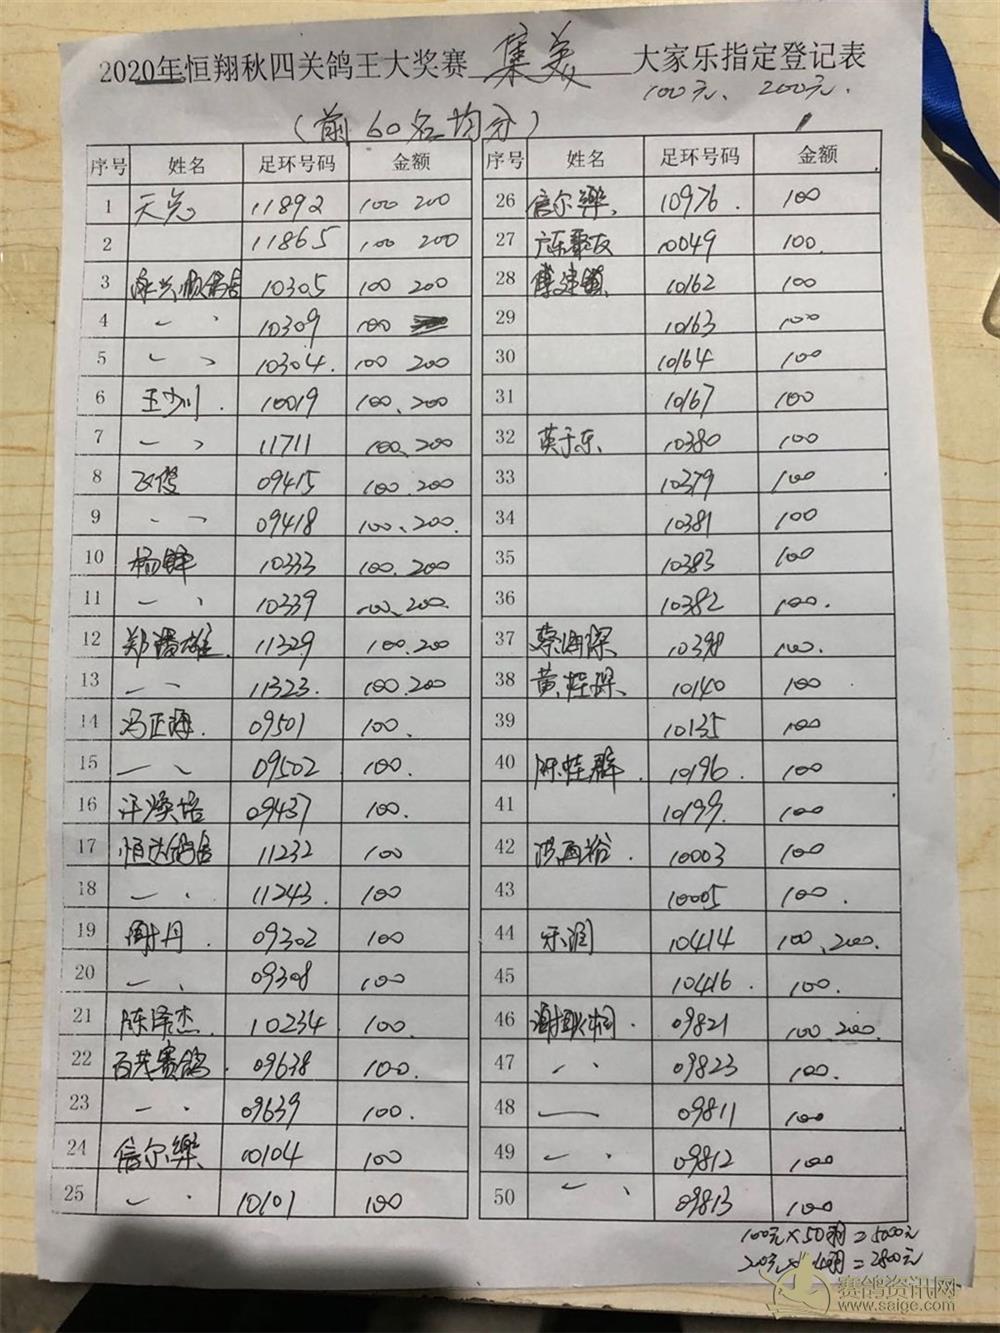 2020年恒翔秋四关鸽王大奖赛 集美 大家乐指定登记表
100元、200元.
(前60名均分)
序号 姓名 足环号码 金额
1 天兜 11892 100 200
2 11865 100 200
3 永兴顺鸽舍 10305 100 200
4 〃 10309 100
5 〃 10304. 100 200
6 王少川. 10019 100、200
7 〃 11711 100、200
8 飞俊 09415 100.200
9 〃 09418 100、200.
10 杨锋 10333 100.200
11 〃 10339 100、200.
12 郑 雄. 11329 100.200
13 〃 11323. 100.200
14 冯正海. 09501 100.
15 〃 09502 100.
16 汗焕培 09437 100.
17 恒达鸽舍 11232 100
18 〃 11243. 100
19 谢丹. 09302 100
20 〃 09308 100
21 陈泽杰. 10234 100.
22 百茂赛鸽. 09638 100.
23 〃 09639 100.
24 信尔樂 00104 100
25 〃 10101 100
序号 姓名 足环号码 金额
26 信尔樂. 10976. 100
27 广东聚友 10049 100.
28 建 10162 100
29 10163 100
30 10164 100
31 10167 100
32 英于东 10380 100
33 10379 100
34 10381 100
35 10383 100
36 10382 100.
37 蔡海深 10398 100.
38 黄桂琛. 10140 100
39 10135 100
40 陈桂群. 10196. 100
41 10199. 100
42 洪画裕. 10003 100
43 10005 100.
44 乐润 10414 100、200.
45 10416. 100.
46 谢 . 09821 100、200.
47 〃 09823 100.
48 — 09811 100
49 〃 09812 100
50 〃 09813 100
100元×50羽=5000元
200元× 羽=2800元
赛鸽资讯网
www.saige.com